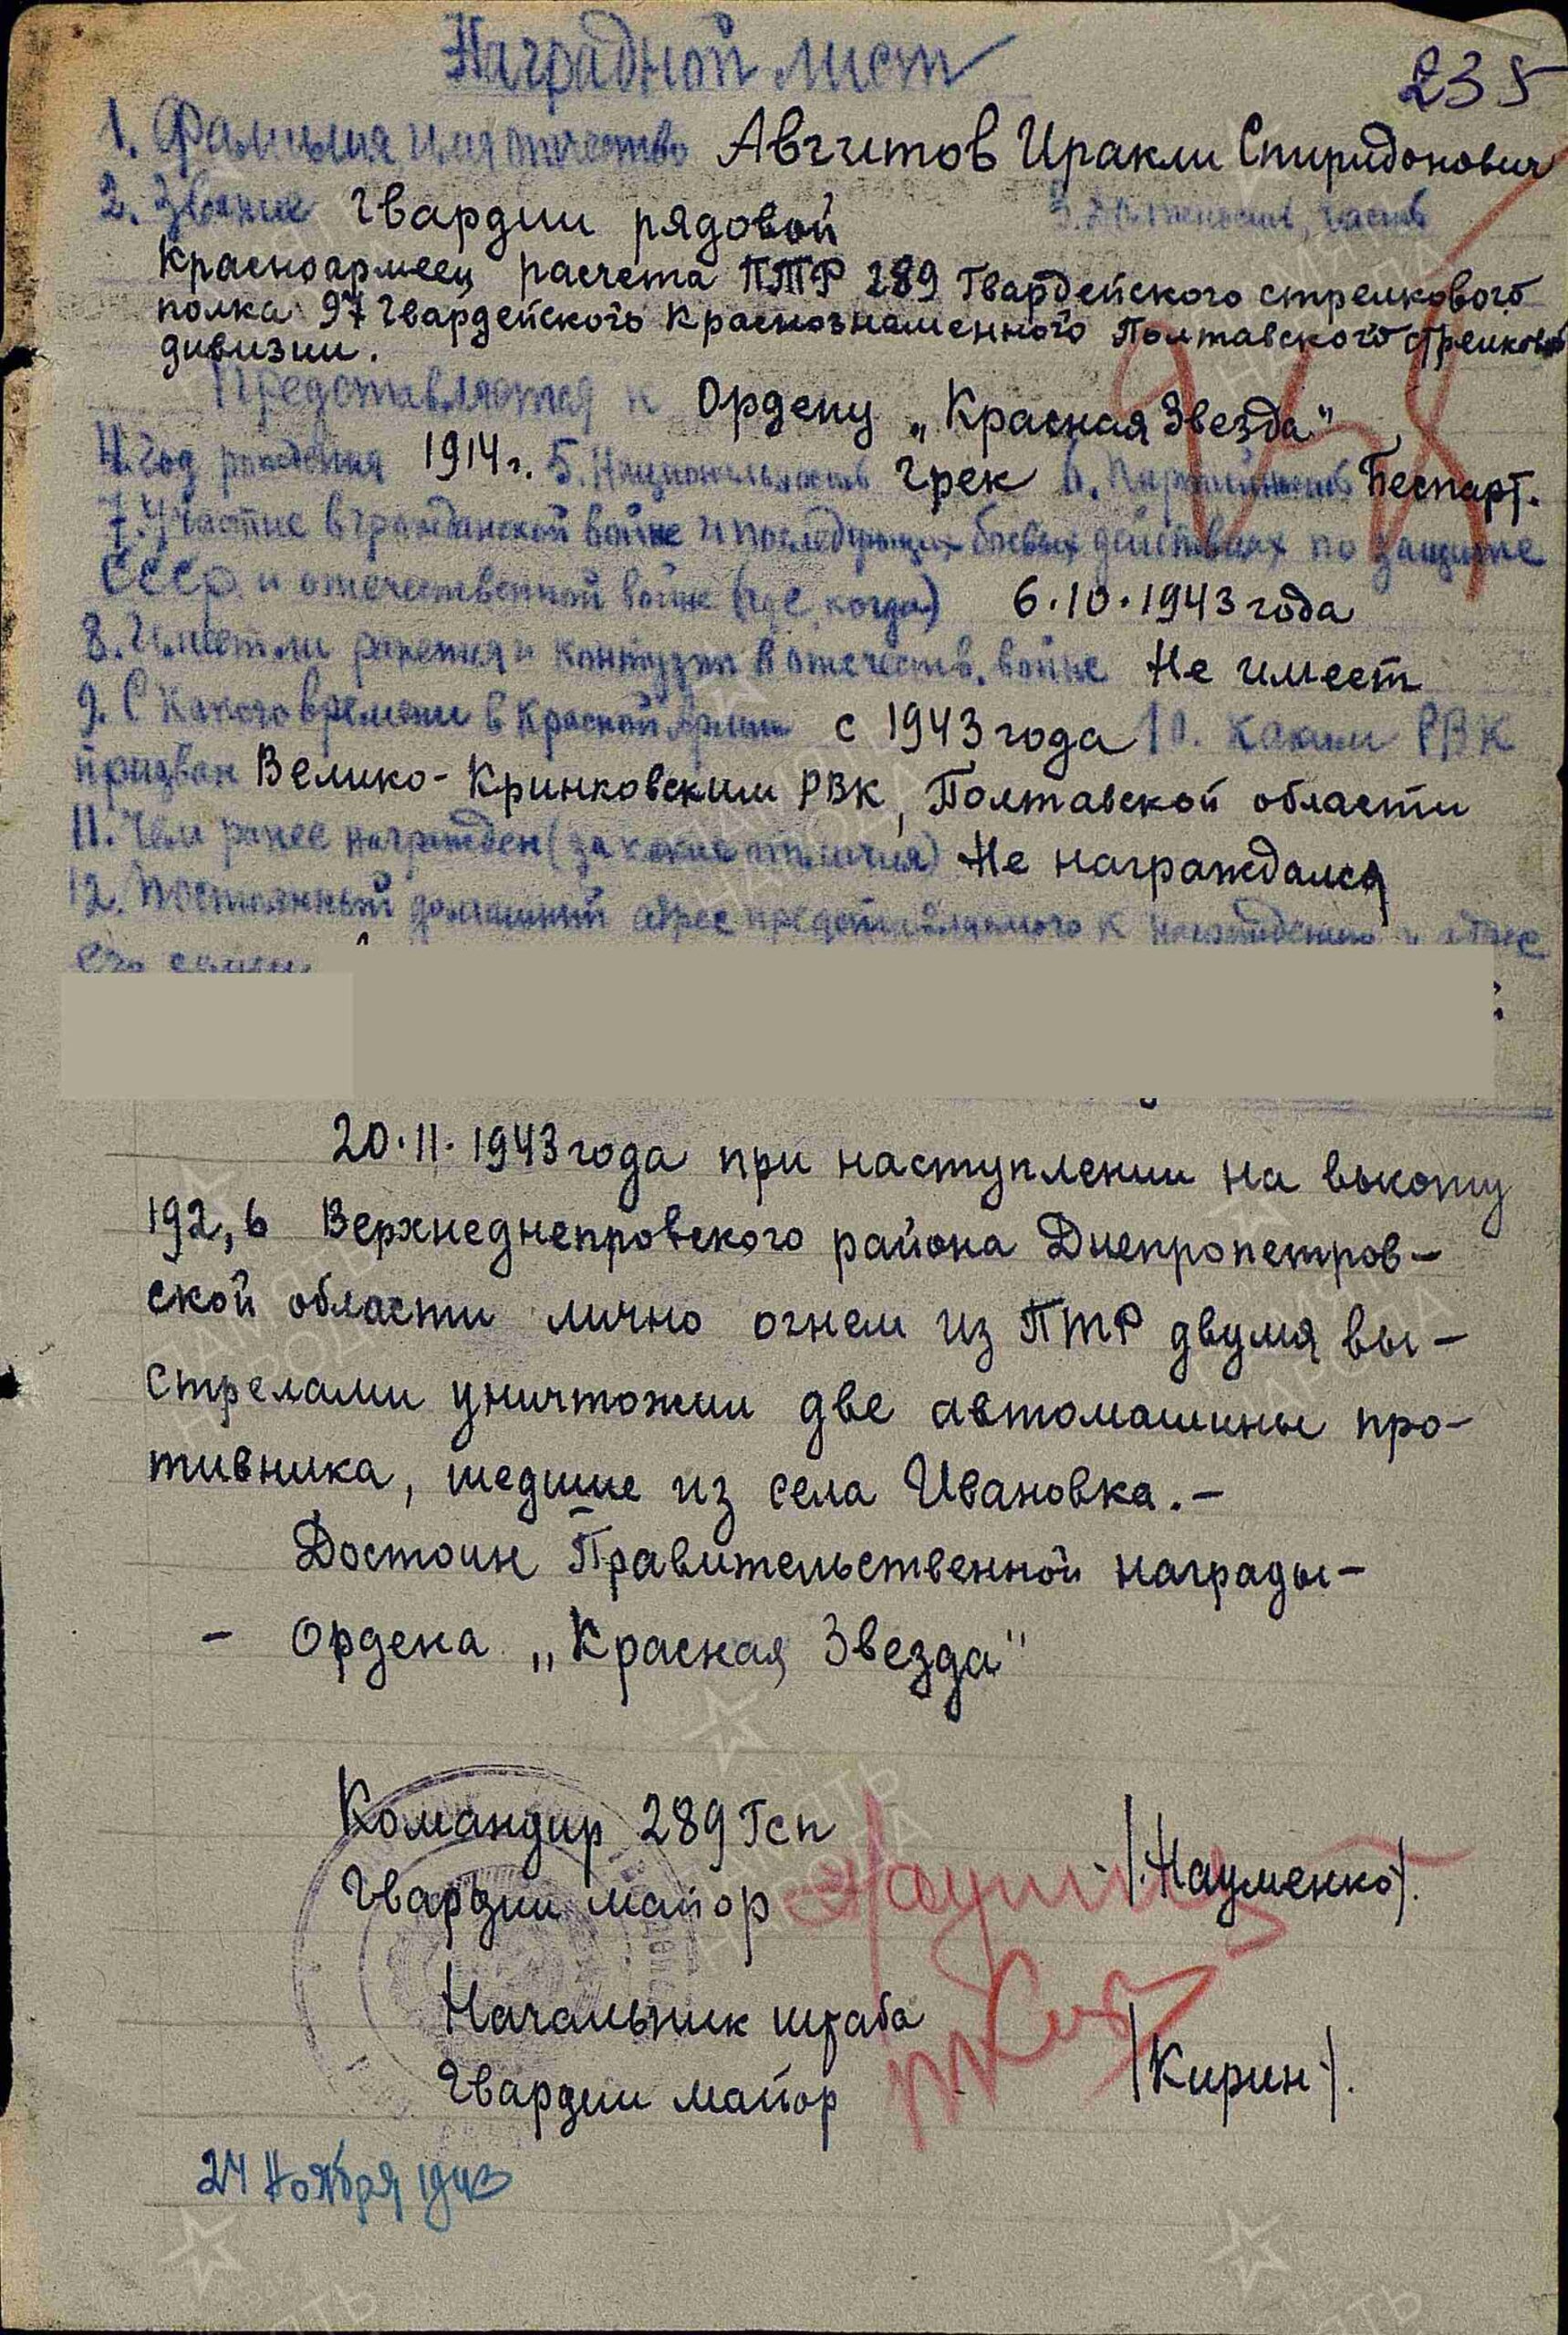 Наградной лист
235
1. Фамилия имя отчество Авгитов Иракли Спиридонович
2. Звание Гвардии рядовой 3. Должность, часть
Красноармеец расчета ПТР 289 Гвардейского стрелкового
полка 97 Гвардейского Краснознаменного Полтавского стрелковой
дивизии.
Представляется к Ордену „Красная Звезда"
4. Год рождения 1914 г. 5. Национальность Грек 6. Партийность Беспарт.
7. Участие в гражданской войне и последующих боевых действиях по защите
СССР и отечественной войне (где, когда) 6.10.1943 года
8. Имеет ли ранения и контузии в отечеств. войне Не имеет
9. С какого времени в Красной Армии с 1943 года 10. Каким РВК
призван Велико-Кринковским РВК, Полтавской области
11. Чем ранее награжден (за какие отличия) Не награждался
12. Постоянный домашний адрес представляемого к награждению и адрес
его семьи
20.11.1943 года при наступлении на высоту
192,6 Верхнеднепровского района Днепропетров-
ской области лично огнем из ПТР двумя вы-
стрелами уничтожил две автомашины про-
тивника, шедшие из села Ивановка.-
Достоин Правительственной награды-
- Ордена „Красная Звезда"
Командир 289 Гсп
Гвардии майор /Науменко/.
Начальник штаба
Гвардии майор /Кирин/.
24 Ноября 1943
ПАМЯТЬ
НАРОДА